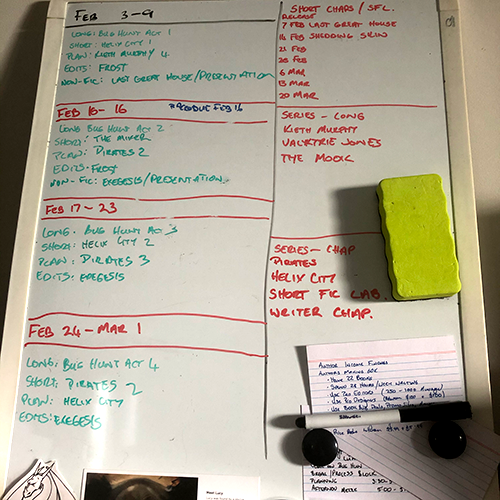 FEB 3-9
LONG: BUG HUNT ACT 1
SHORT: HELIX CITY 1
PLAN: KIETH MURPHY 4
EDITS: FROST
NON-FIC: LAST GREAT HOUSE/PRESENTATION
FEB 10-16
*PRODUCE FEB 16
LONG BUG HUNT ACT 2
SHORT: THE MIXER
PLAN: PIRATES 2
EDITS: FROST
NON-FIC: EXEGESIS/PRESENTATION
FEB 17-23
LONG: BUG HUNT ACT 3
SHORT: HELIX CITY 2
PLAN: PIRATES 3
EDITS: EXEGESIS
FEB 24-MAR 1
LONG: BUG HUNT ACT 4
SHORT: PIRATES 2
PLAN: HELIX CITY
EDITS: EXEGESIS
SHORT CHAPS / SFL
RELEASE
7 FEB LAST GREAT HOUSE
14 FEB SHEDDING SKIN
21 FEB
28 FEB
6 MAR
13 MAR
20 MAR
SERIES - LONG
KIETH MURPHY
VALKYRIE JONES
THE MOOK
SERIES - CHAP
PIRATES
HELIX CITY
SHORT FIC LAB
WRITER CHAP.
AUTHOR INCOME FINDINGS
AUTHORS MAKING 60K
• HAVE 22 BOOKS
• SPEND 28 HOURS/WEEK WRITING
PLANNING